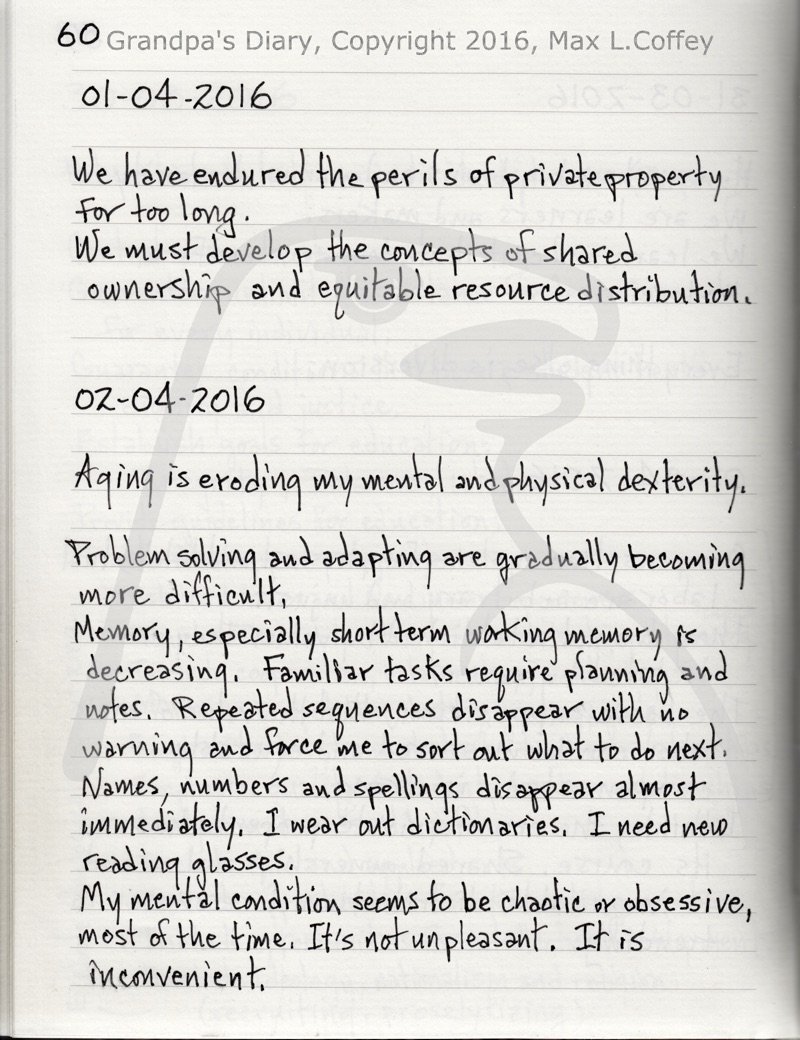 60 Grandpa's Diary, Copyright 2016, Max L.Coffey
01-04-2016
We have endured the perils of private property
for too long.
We must develop the concepts of shared
ownership and equitable resource distribution.
02-04-2016
Aging is eroding my mental and physical dexterity.
Problem solving and adapting are gradually becoming
more difficult,
Memory, especially short term working memory is
decreasing. Familiar tasks require planning and
notes. Repeated sequences disappear with no
warning and force me to sort out what to do next.
Names, numbers and spellings disappear almost
immediately. I wear out dictionaries. I need new
reading glasses.
My mental condition seems to be chaotic or obsessive,
most of the time. It's not unpleasant. It is
inconvenient.